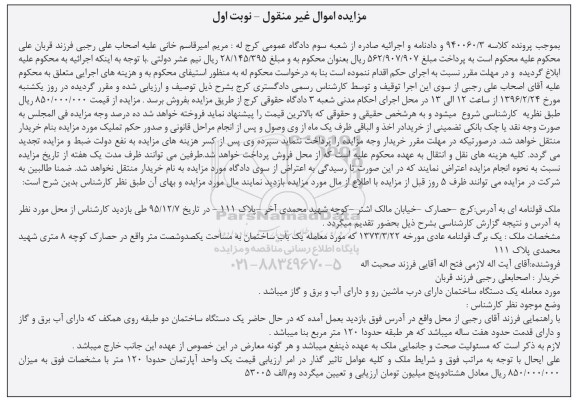 مزایده اموال غیر منقول – نوبت اول
بموجب پرونده کلاسه ۹۴۰۰۶۰/۳ و دادنامه و اجرائیه صادره از شعبه سوم دادگاه عمومی کرج له : مریم امیرقاسم خانی علیه اصحاب علی رجبی فرزند قربان علی
محکوم علیه محکوم است به پرداخت مبلغ ۵۶۲/۹۰۷/۹۰۷ ریال بعنوان محکوم به و مبلغ ۲۸/۱۴۵/۳۹۵ ریال نیم عشر دولتی .با توجه به اینکه اجرائیه به محکوم علیه
ابلاغ گردیده و در مهلت مقرر نسبت به اجرای حکم اقدام ننموده است بنا به درخواست محکوم له به منظور استیفای محکوم به و هزینه های اجرایی متعلق به محکوم
علیه آقای اصحاب علی رجبی از سوی این اجرا توقیف و توسط کارشناس رسمی دادگستری کرج بشرح ذیل توصیف و ارزیابی شده و مقرر گردیده در روز یکشنبه
مورخ ۱۳۹۶/۲/۲۴ از ساعت ۱۲ الی ۱۳ در محل اجرای احکام مدنی شعبه ۳ دادگاه حقوقی کرج از طریق مزایده بفروش برسد . مزایده از قیمت ۸۵۰/۰۰۰/۰۰۰ ریال
طبق نظریه کارشناسی شروع میشود و به هرشخص حقیقی و حقوقی که بالاترین قیمت را پیشنهاد نماید فروخته خواهد شد ده درصد وجه مزایده فی المجلس به
صورت وجه نقد یا چک بانکی تضمینی از خریداراخذ و الباقی ظرف یک ماه از وی وصول و پس از انجام مراحل قانونی و صدور حکم تملیک مورد مزایده بنام خریدار
منتقل خواهد شد. درصورتیکه در مهلت مقرر خریدار وجه مزایده را پرداخت ننماید سپرده وی پس از کسر هزینه های مزایده به نفع دولت ضبط و مزایده تجدید
می گردد. کلیه هزینه های نقل و انتقال به عهده محکوم علیه است که از محل فروش پرداخت خواهد شد.طرفین می توانند ظرف مدت یک هفته از تاریخ مزایده
نسبت به نحوه انجام مزایده اعتراض نمایند که در این صورت تا رسیدگی به اعتراض از سوی دادگاه مورد مزایده به نام خریدار منتقل نخواهد شد. ضمنا طالبین به
شرکت در مزایده می توانند ظرف ۵ روز قبل از مزایده با اطلاع از مال مورد مزایده بازدید نمایند مال مورد مزایده و بهای آن طبق نظر کارشناس بدین شرح است:
ملک قولنامه ای به آدرس:کرج –حصارک –خیابان مالک اشتر –کوچه شهید محمدی آخر –پلاک ۱۱۱ – در تاریخ ۹۵/۱۲/۷ طی بازدید کارشناس از محل مورد نظر
به آدرس و نتیجه گزارش کارشناسی بشرح ذیل بحضور تقدیم میگردد .
مشخصات ملک : یک برگ قولنامه عادی مورخه ۱۳۷۳/۳/۲۲ که مورد معامله یک باب ساختمان به مساحت یکصدوشصت متر واقع در حصارک کوچه ۸ متری شهید
محمدی پلاک ۱۱۱
فروشنده:آقای آیت اله لازمی فتح اله آقایی فرزند صحبت اله
خریدار : اصحابعلی رجبی فرزند قربان
مورد معامله یک دستگاه ساختمان دارای درب ماشین رو و دارای آب و برق و گاز میباشد .
وضع موجود نظر کارشناس :
با راهنمایی فرزند آقای رجبی از محل واقع در آدرس فوق بازدید بعمل آمده که در حال حاضر یک دستگاه ساختمان دو طبقه روی همکف که دارای آب برق و گاز
و دارای قدمت حدود هفت ساله میباشد که هر طبقه حدودا ۱۲۰ متر مربع بنا میباشد .
لازم به ذکر است که مسئولیت صحت و جانمایی ملک به عهده ذینفع میباشد و هر گونه معارض در این خصوص از عهده این جانب خارج میباشد .
علی ایحال با توجه به مراتب فوق و شرایط ملک و کلیه عوامل تاثیر گذار در امر ارزیابی قیمت یک واحد آپارتمان حدودا ۱۲۰ متر با مشخصات فوق به میزان
۸۵۰/۰۰۰/۰۰۰ ریال معادل هشتادوپنج میلیون تومان ارزیابی و تعیین میگردد وم/الف ۵۳۰۰۵
ParsNamadData
پایگاه اطلاع رسانی مناقصه و مزایده
۰۲۱-۸۸۳۴۹۶۷۰-۵